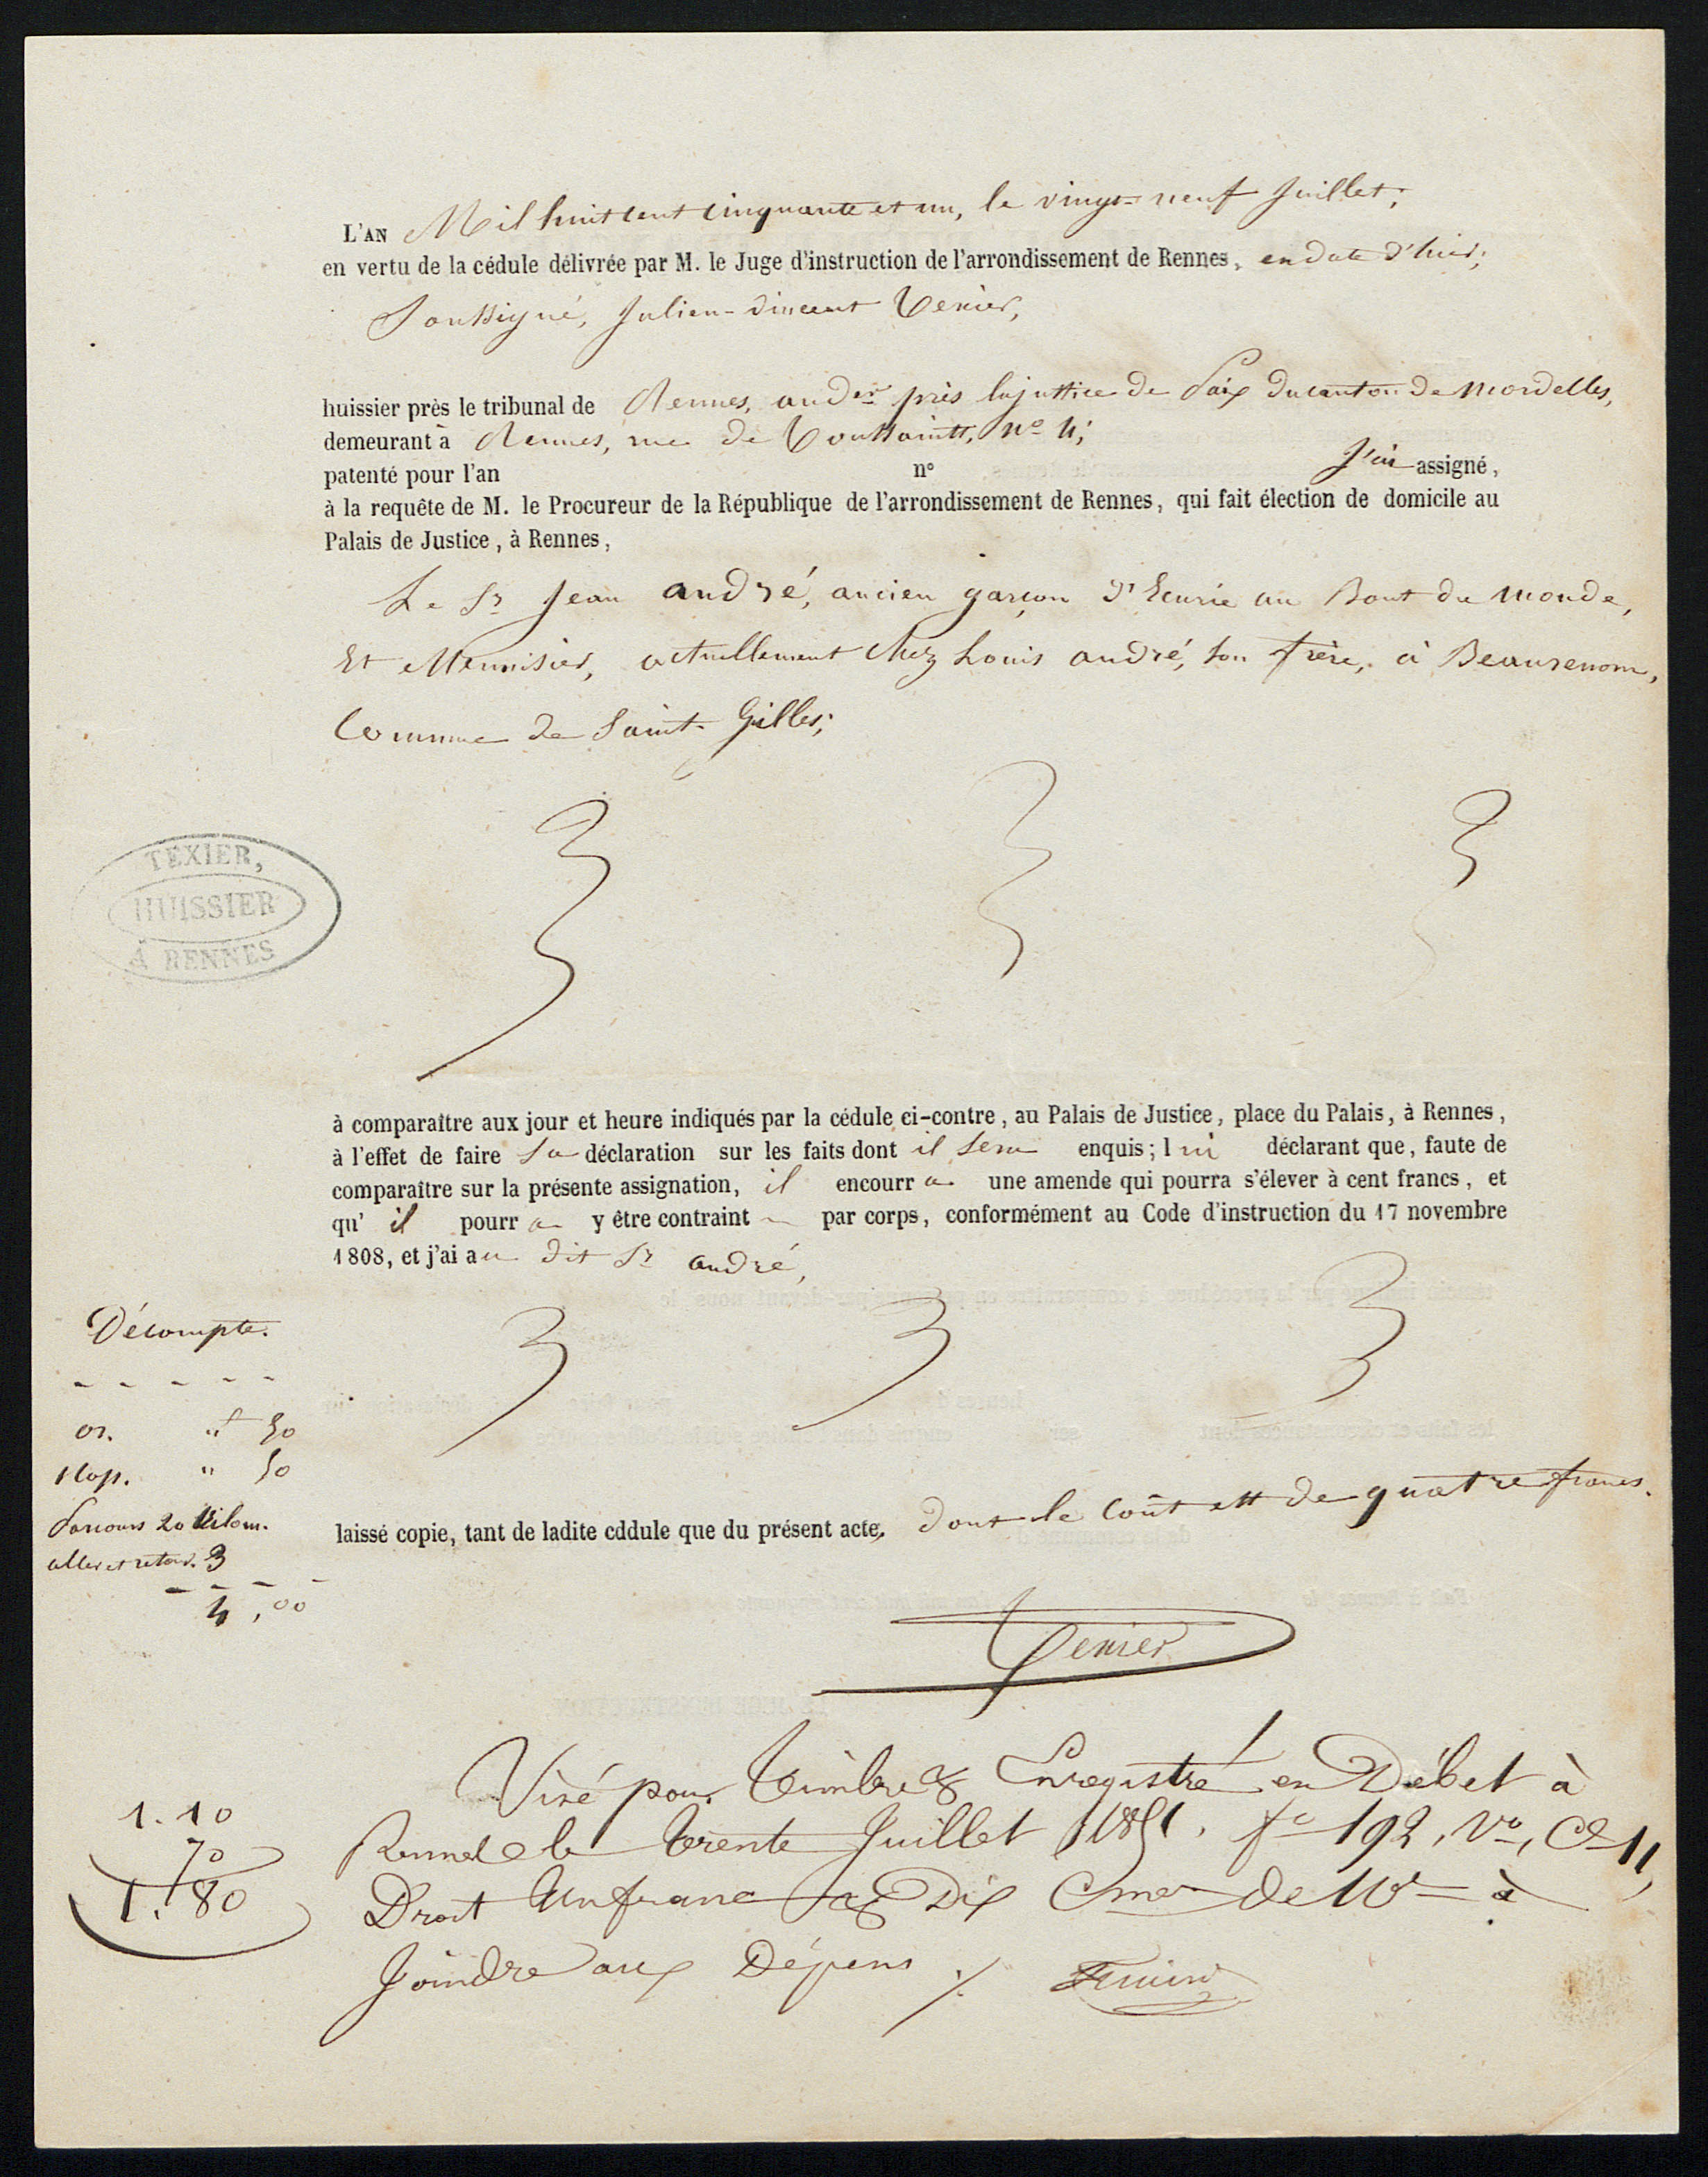 L'AN Mil huit cent cinquante et un, le vingt-neuf Juillet;
en vertu de la cédule délivrée par M. le Juge d'instruction de l'arrondissement de Rennes, en date d'hier;
Soussigné, Julien-Vincent Texier,
huissier près le tribunal de Rennes, audr près la justice de Paix du canton de Mordelles,
demeurant à Rennes, rue de Toussaints, no 4;
patenté pour l'an no J'ai assigné,
à la requête de M. le Procureur de la République de l'arrondissement de Rennes, qui fait élection de domicile au
Palais de Justice, à Rennes,
Le Sr Jean andré, ancien garçon d'Ecurie au Bout du monde,
Et Menuisier, actuellement chez Louis andré, son frère, à Beaurenom,
Commune de Saint-Gilles;
TEXIER,
HUISSIER
A RENNES
à comparaître aux jour et heure indiqués par la cédule ci-contre, au Palais de Justice, place du Palais, à Rennes,
à l'effet de faire sa déclaration sur les faits dont il sera enquis; lui déclarant que, faute de
comparaître sur la présente assignation, il encourra une amende qui pourra s'élever à cent francs, et
qu'il pourra y être contraint par corps, conformément au Code d'instruction du 17 novembre
1808, et j'ai au dit Sr andré,
Décompte.
or. " f 50
1 Cop. " 50
Parcours 20 Kilom.
aller et retour. 3
4,00
laissé copie, tant de ladite cddule que du présent acte, dont le coût est de quatre francs.
Texier
Visé pour Timbre & Enregistré en Débet à
Rennes le trente Juillet 1851. fo 192, Vo, Ce 11,
Droit Un franc & Dix Cmes de 10e à
Joindre aux Dépens ./.
1.10
70
1.80